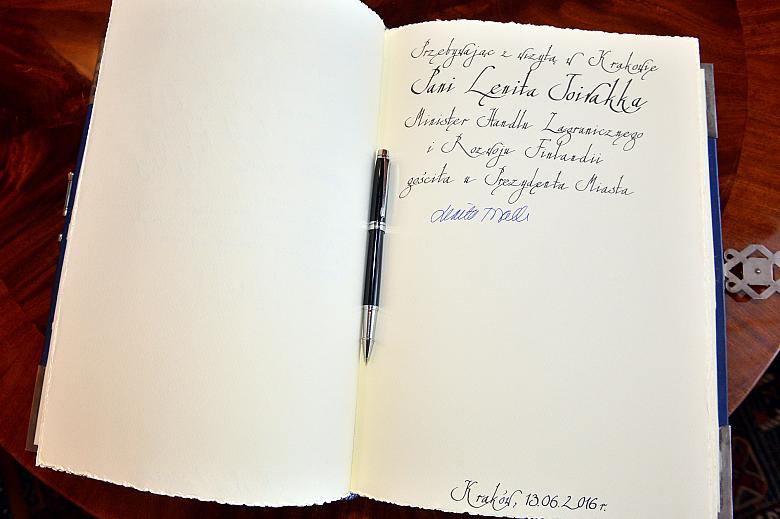 Przebywając z wizytą w Krakowie
Pani Lenita Toivakka
Minister Handlu Zagranicznego
i Rozwoju Finlandii
gościła u Prezydenta Miasta
Kraków, 13.06.2016 r.